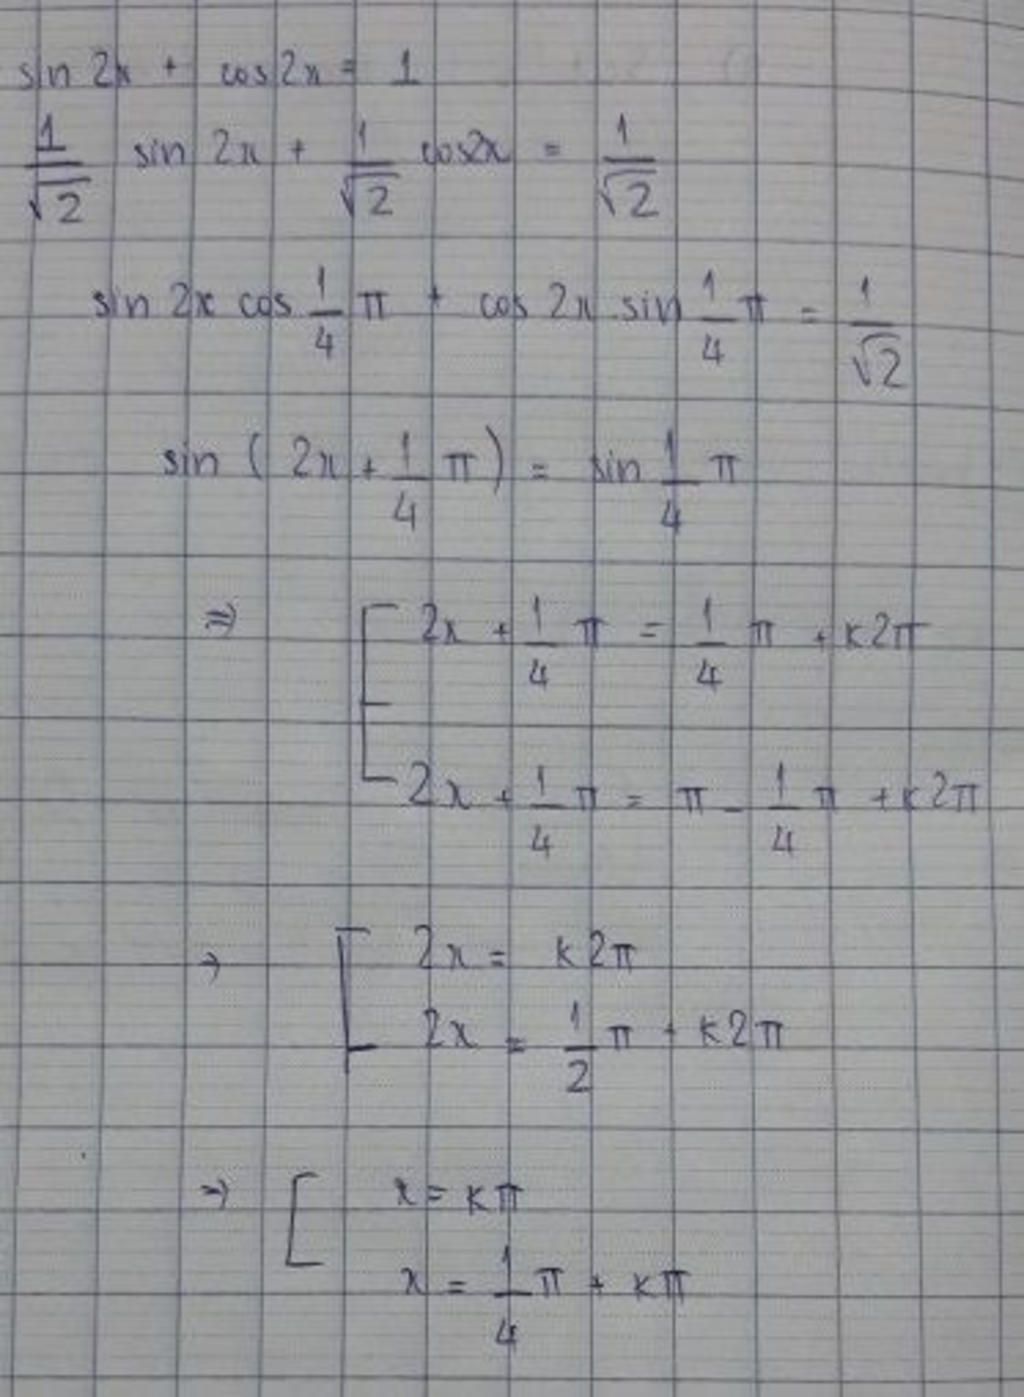 sin 2x + cos 2x = 1
1/√2 sin 2x + 1/√2 cos2x = 1/√2
sin 2x cos 1/4 π + cos 2x . sin 1/4 π = 1/√2
sin ( 2x + 1/4 π ) = sin 1/4 π
⇒ [ 2x + 1/4 π = 1/4 π + k2π
2x + 1/4 π = π - 1/4 π + k2π
⇒ [ 2x = k2π
2x = 1/2 π + k2π
⇒ [ x = kπ
x = 1/4 π + kπ